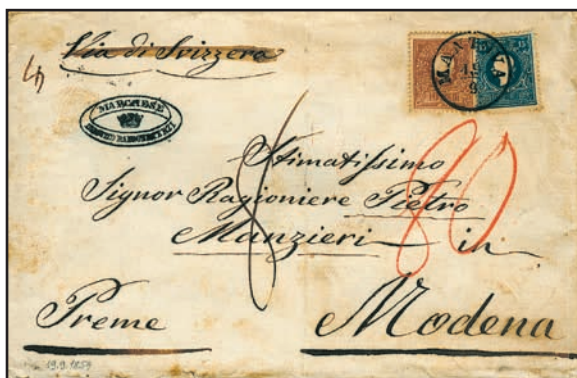 Via di Svizzera
MARCHESE
MANTOVA
15
9
Stimatissimo
Signor Ragioniere Pietro
Manzieri in
Modena
Preme
8
80
19.9.1859